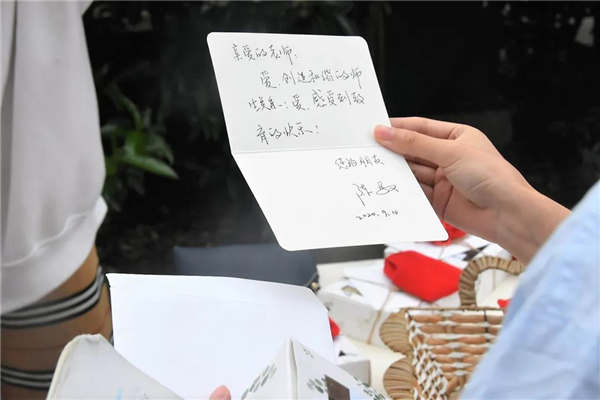 亲爱的老师：
爱,创造和谐的师
生关系；爱、感受到教
育的快乐！
2020.9.10